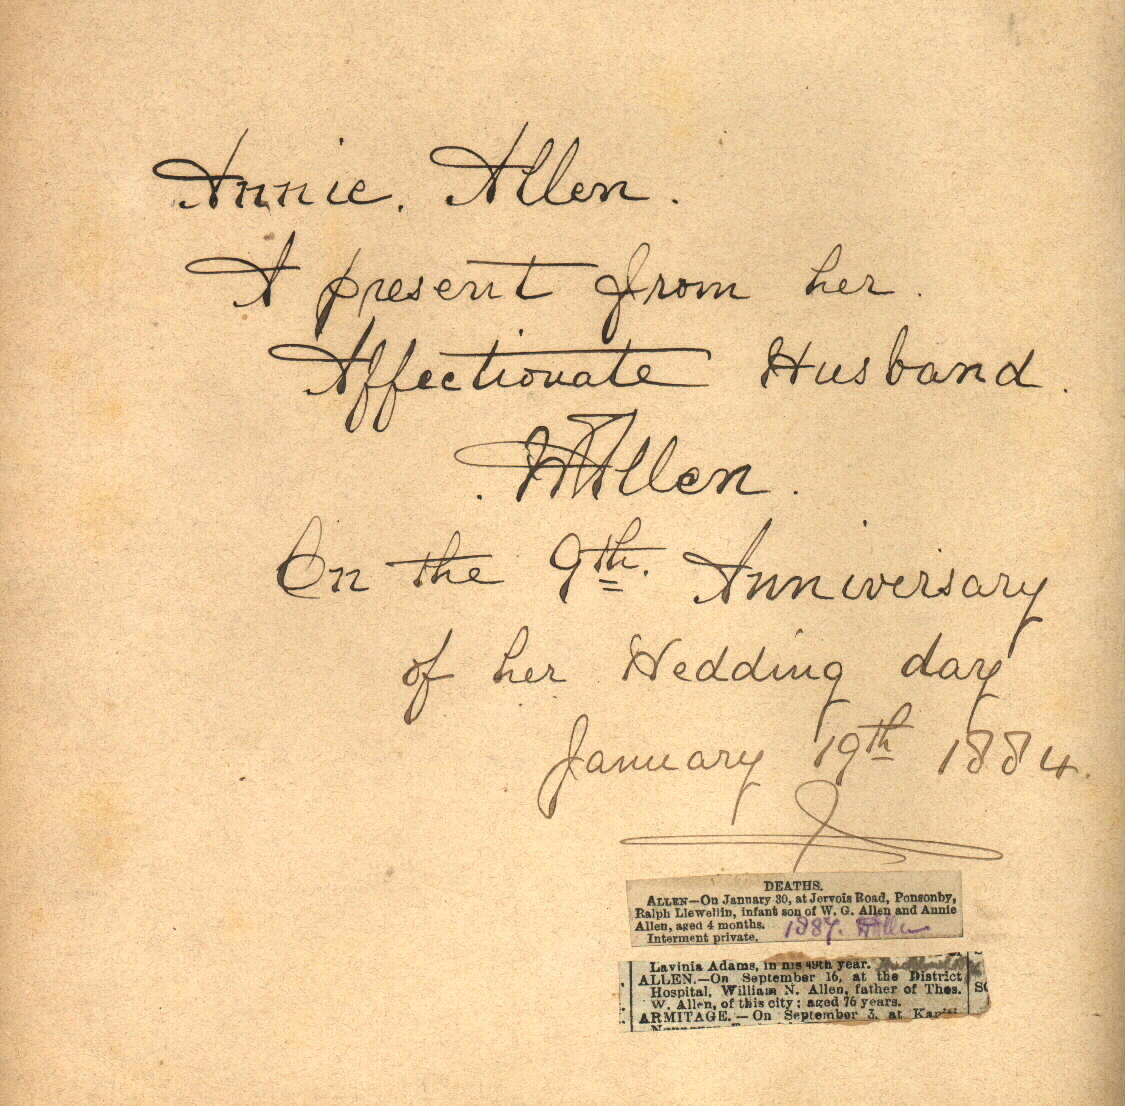 Annie. Allen.
A present from her.
Affectionate Husband.
Allen.
On the 9th. Anniversary
of her Wedding day
January 19th 1884.
DEATHS.
ALLEN—On January 30, at Jervois Road, Ponsonby,
Ralph Llewellin, infant son of W. G. Allen and Annie
Allen, aged 4 months. 1887.
Interment private.
Lavinia Adams, in his 49th year.
ALLEN.—On September 16, at the District
Hospital, William N. Allen, father of Thos.
W. Allen, of this city; aged 76 years.
ARMITAGE.—On September 3, at